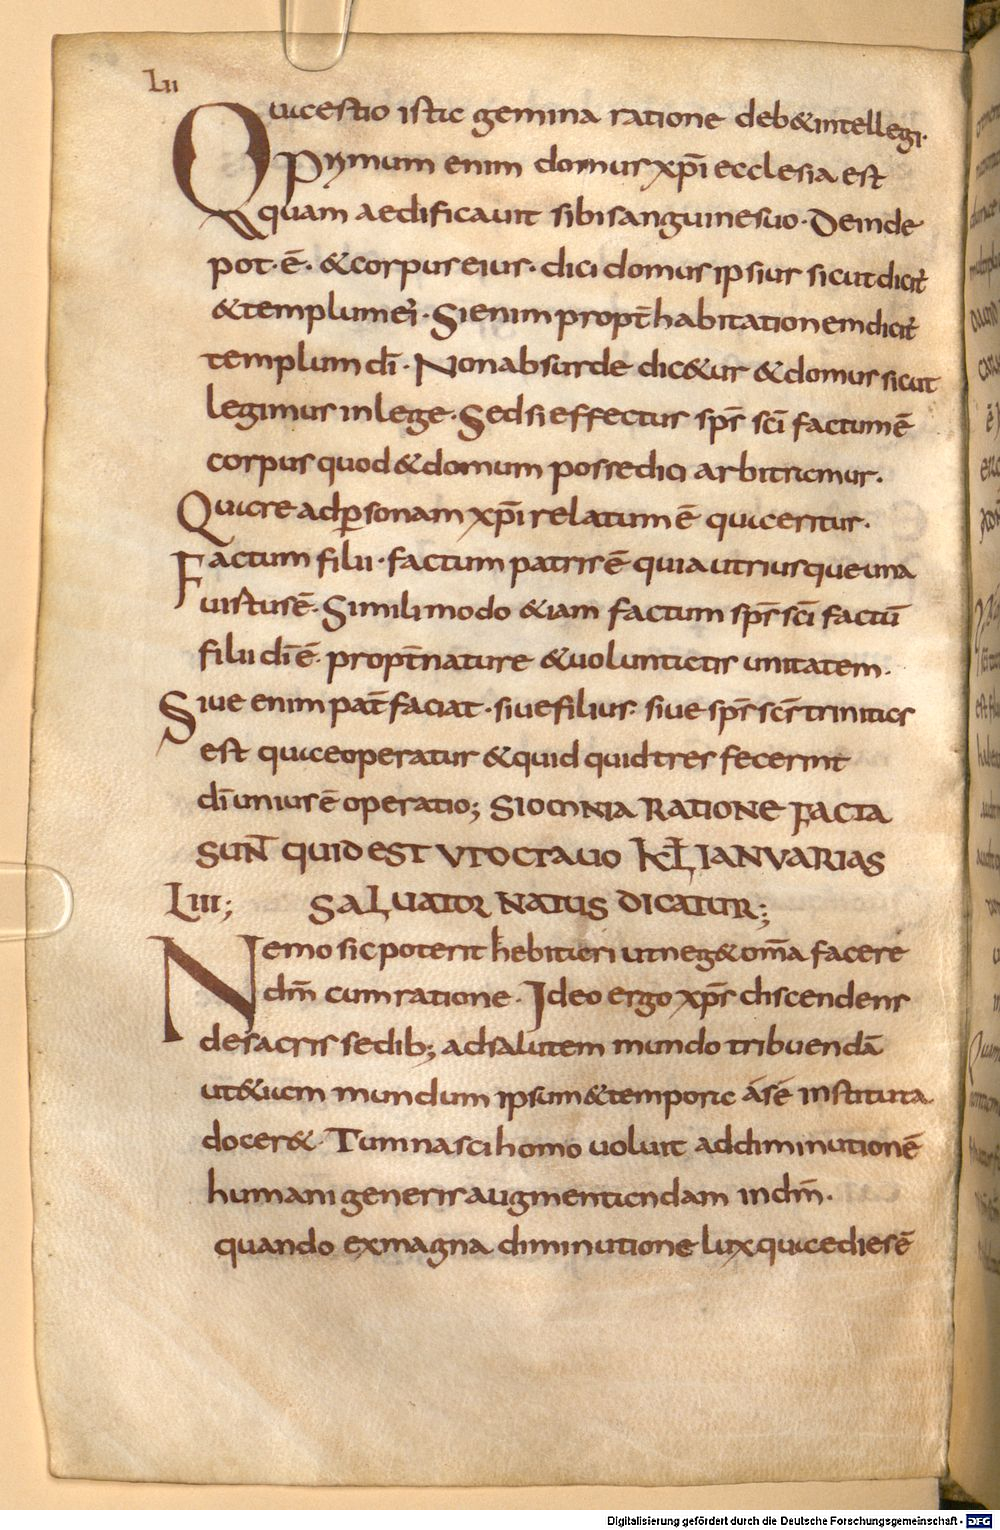 LII
Quaestio ista gemina ratione deb&intellegi.
Primum enim domus xp̄i ecclesia est
quam aedificauit sibi sanguine suo. Deinde
pot. ē. & corpus eius. dici domus ipsius sicut dicit̄
& templum ei. Si enim propt̄ habitationem dicit̄
templum dī. Non absurde dic&ur & domus sicut
legimus in lege. Sed si effectus sp̄s sc̄i factum ē
corpus quod & domum posse dici arbitramur.
Qua re ad ꝑsonam xp̄i relatum ē quaeritur.
Factum filii. factum patris ē quia utriusque una
uirtus ē. Simili modo &iam factum sp̄s sc̄i factū
filii dī ē. propt̄ nature & uoluntatis unitatem.
Siue enim pat̄ faciat. siue filius. siue sp̄s sc̄s trinitas
est quae operatur & quid quid tres fecerint
dī unius ē operatio; SI OMNIA RATIONE FACTA
SUNT̄ QUID EST VT OCTAUO KL̄ IANVARIAS
LIII; SALUATOR NATUS DICATUR;
Nemo sic poterit hebitari ut neg& om̄a facere
dm̄ cum ratione. Ideo ergo xp̄s discendens
de sacris sedib; ad salutem mundo tribuendā
ut &iam mundum ipsum & tempora á sé instituta
docer&. Tum nasci homo uoluit ad diminutionē
humani generis augmentandam in dm̄.
quando ex magna diminutione lux quae dies ē
Digitalisierung gefördert durch die Deutsche Forschungsgemeinschaft - DFG